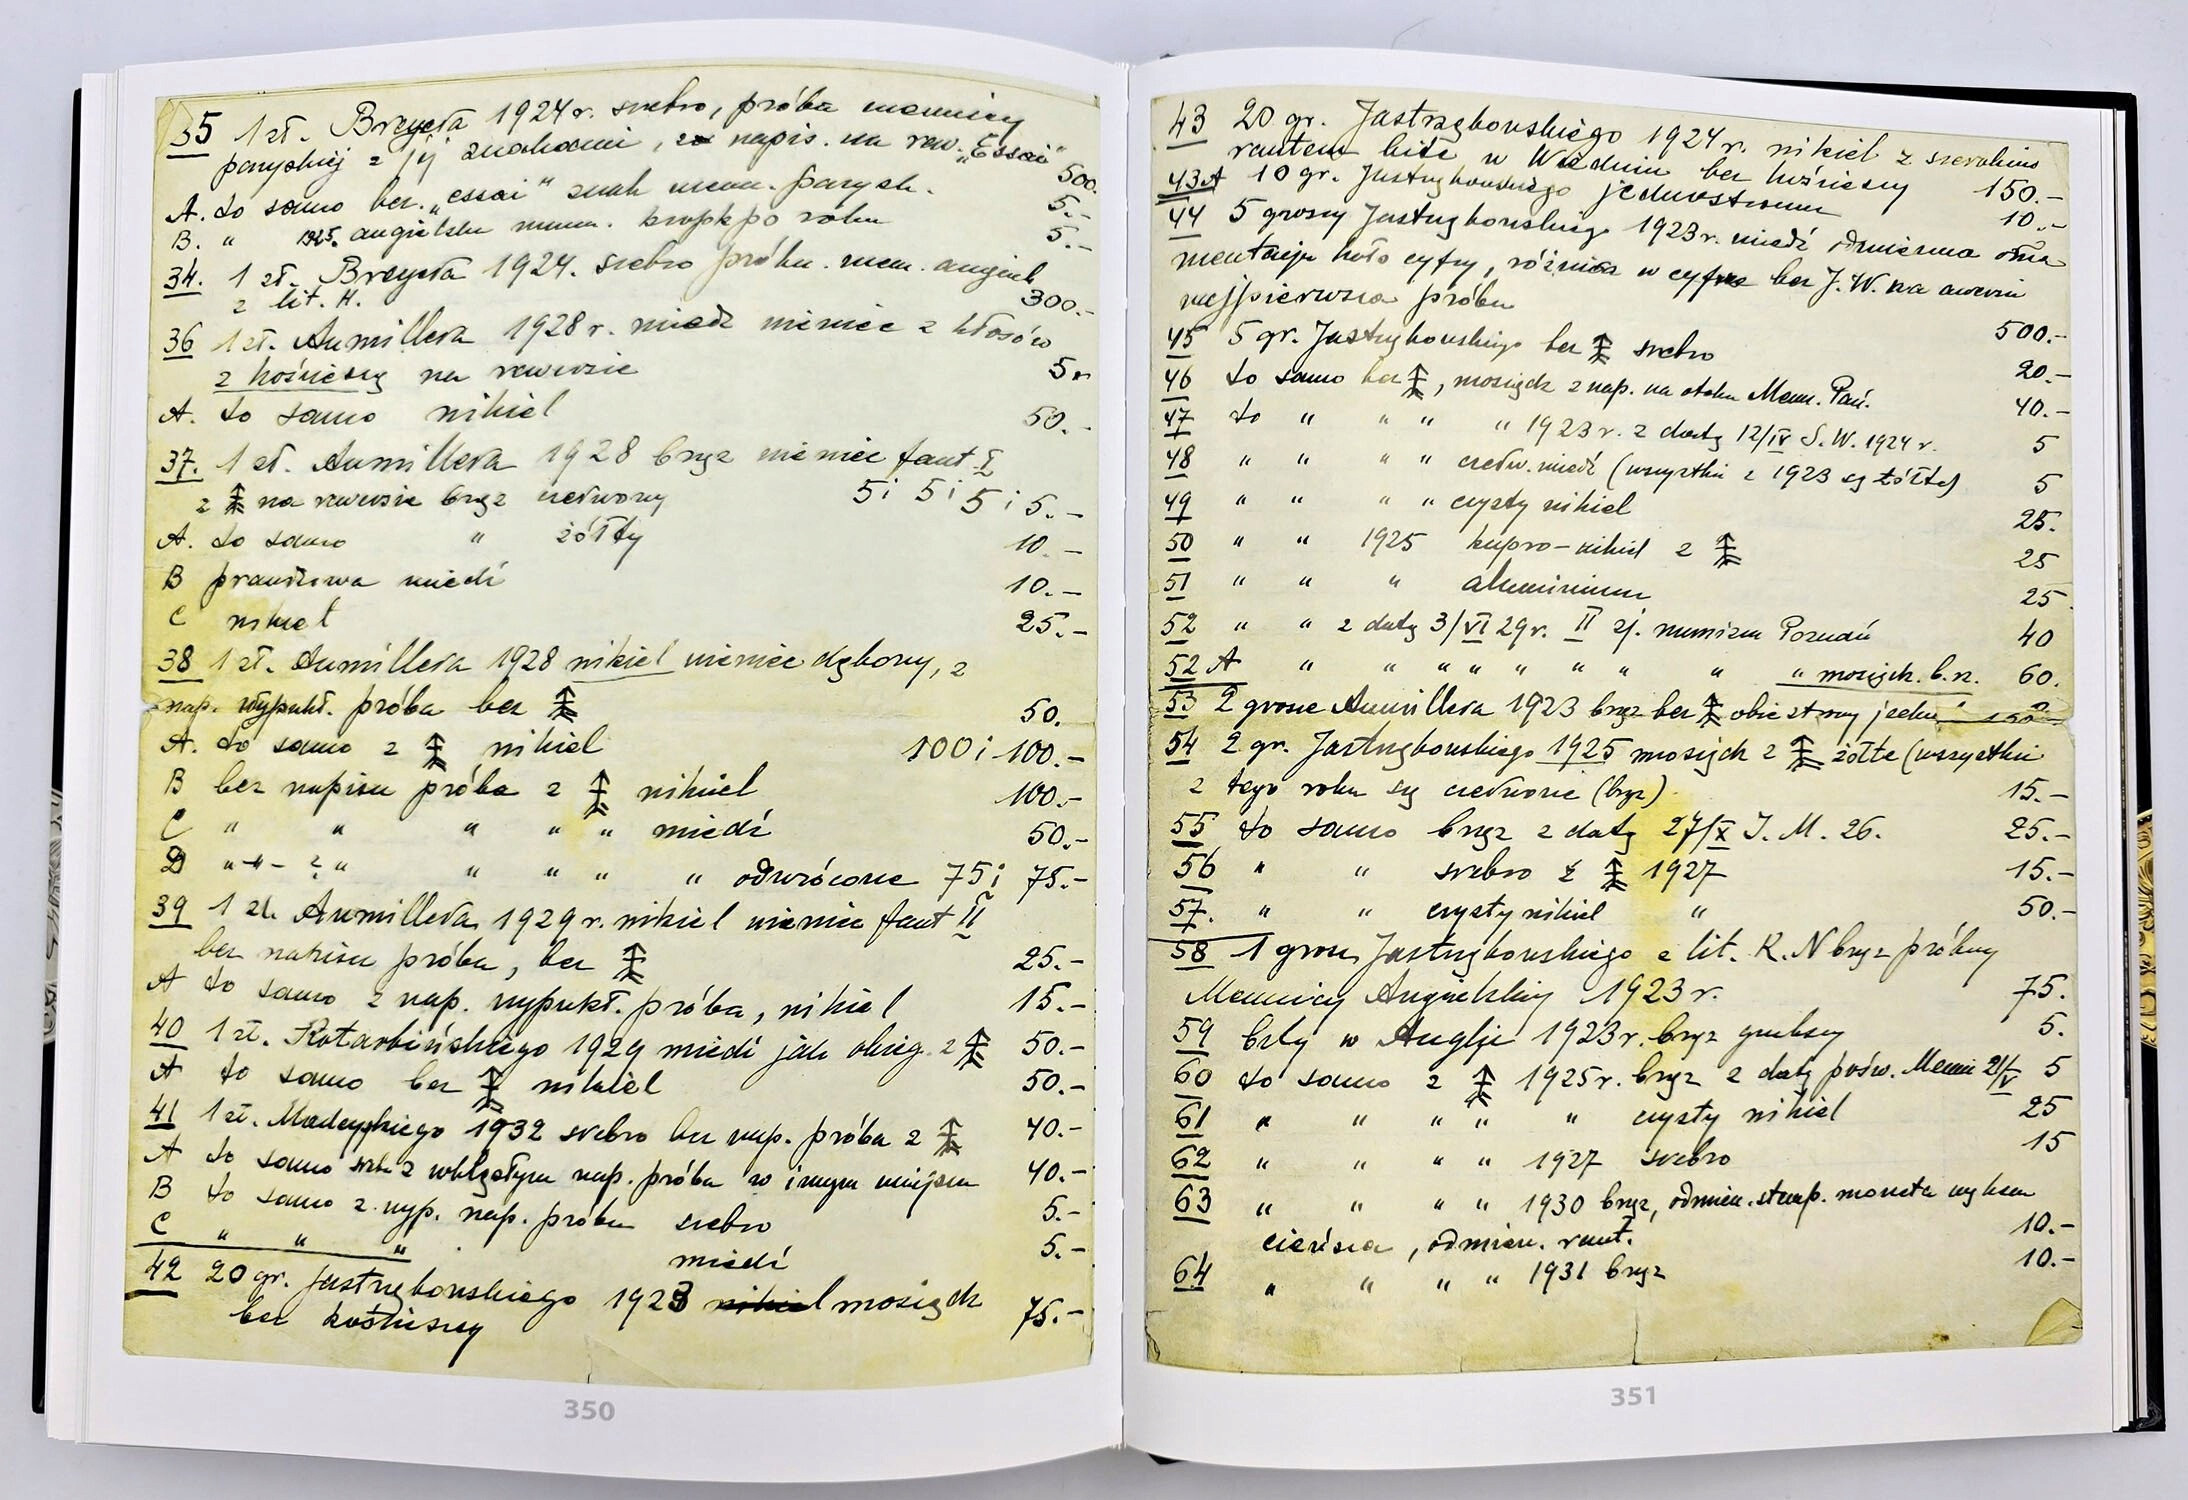 35 1 zł. Brzęsta 1924 r. srebro, próba mennicy
paryskiej z jej znakami, z napis. na rew. „Essai" 500.
A. to samo bez „essai" znak menn. parysk. 5.-
B. " 1925. angielska menn. kropk po roku 5.-
34. 1 zł. 1924. srebro próba. men. angiel
z lit. H. 300.-
36 1 zł. Aumillera 1928 r. miedź wieniec z kłosów
z kościeszą na rewersie 5.-
A. to samo nikiel 50.-
37. 1 zł. Aumillera 1928 brąz wieniec fant I
z na rewersie brąz czerwony 5 i 5 i 5 i 5.-
A. to samo " żółty 10.-
B prawdziwa miedź 10.-
C nikiel 25.-
38 1 zł. Aumillera 1928 nikiel wieniec dębowy, z
nap. wypukł. próba bez 50.
A. to samo z nikiel 100 i 100.-
B bez napisu próba z nikiel 100.-
C " " " " " miedź 50.-
D " " " " " " " odwrócone 75 i 75.-
39 1 zł. Aumillera 1929 r. nikiel wieniec fant II
bez napisu próba, bez 25.-
A to samo z nap. wypukł. próba, nikiel 15.-
40 1 zł. Kotarbińskiego 1929 miedź jak obieg. z 50.-
A to samo bez nikiel 50.-
41 1 zł. Madeyskiego 1932 srebro bez nap. próba z 40.-
A to samo z wklęsłym nap. próba w innym miejscu 40.-
B to samo z wyp. nap. próba srebro 5.-
C " " " miedź 5.-
42 20 gr. Jastrzębowskiego 1923 mosiądz
bez kościeszy 75.-
350
43 20 gr. Jastrzębowskiego 1924 r. nikiel z szerokim
rantem bite w Wiedniu bez kościeszy 150.-
43A 10 gr. Jastrzębowskiego jednostronna 10.-
44 5 groszy Jastrzębowskiego 1923 r. miedź odmienna orna
mentacja koło cyfry, różnica w cyfrze bez J.W. na awersie
najpierwsza próba 500.-
45 5 gr. Jastrzębowskiego bez srebro 20.-
46 to samo bez, mosiądz z nap. na otoku Menn. Pań. 40.-
47 to " " " " 1923 r. z datą 12/IV S.W. 1924 r. 5
48 " " " " czerw. miedź (wszystkie z 1923 są żółte) 5
49 " " " " czysty nikiel 25.
50 " " 1925 kupro-nikiel z 25
51 " " " aluminium 25
52 " " z datą 3/VI 29 r. II zj. numizm Poznań 40
52A " " " " " " " " " mosiądz. b. n. 60.
53 2 grosze Aumillera 1923 brąz bez obie strony jedn.
54 2 gr. Jastrzębowskiego 1925 mosiądz z żółte (wszystkie
z tego roku są czerwone (brąz) 15.-
55 to samo brąz z datą 27/X J. M. 26. 25.-
56 " " srebro z 1927 15.-
57. " " czysty nikiel " 50.-
58 1 grosz Jastrzębowskiego z lit. K. N brąz próbny
Mennicy Angielskiej 1923 r. 75.
59 bity w Anglji 1923 r. brąz grubszy 5.
60 to samo z 1925 r. brąz z datą pośw. Menni 21/V 5
61 " " " " " czysty nikiel 25
62 " " " " 1927 srebro 15
63 " " " " 1930 brąz, odmien. stemp. moneta wyksza
cieńsza, odmien. rant. 10.-
64 " " " " 1931 brąz 10.-
351